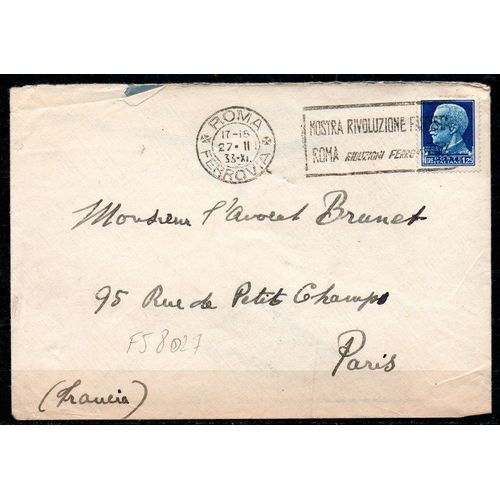 ROMA FERROVIA
17-18
27·II
33·XI
MOSTRA RIVOLUZIONE
ROMA RIDUZIONI FERRO
POSTE
ITALIANE 1,25
Monsieur l'avocat Brunet
95 Rue de Petit Champs
FS 8027
Paris
(Francia)